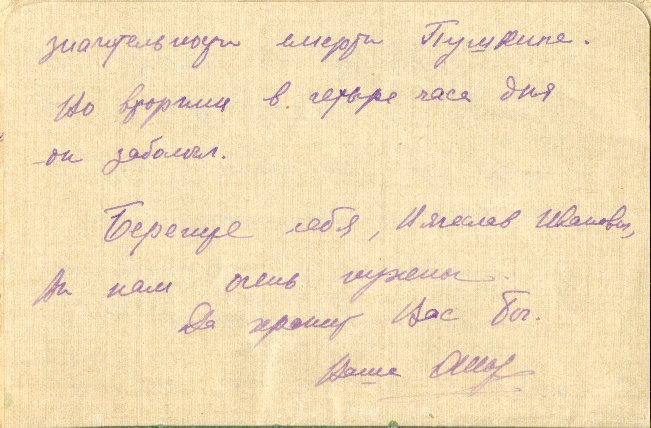 значительности смерти Пушкина.
Но вторник в четыре часа дня
он заболел.
Берегите себя, Вячеслав Иванович,
Вы нам очень нужны
Да хранит Вас Бог.
Ваша